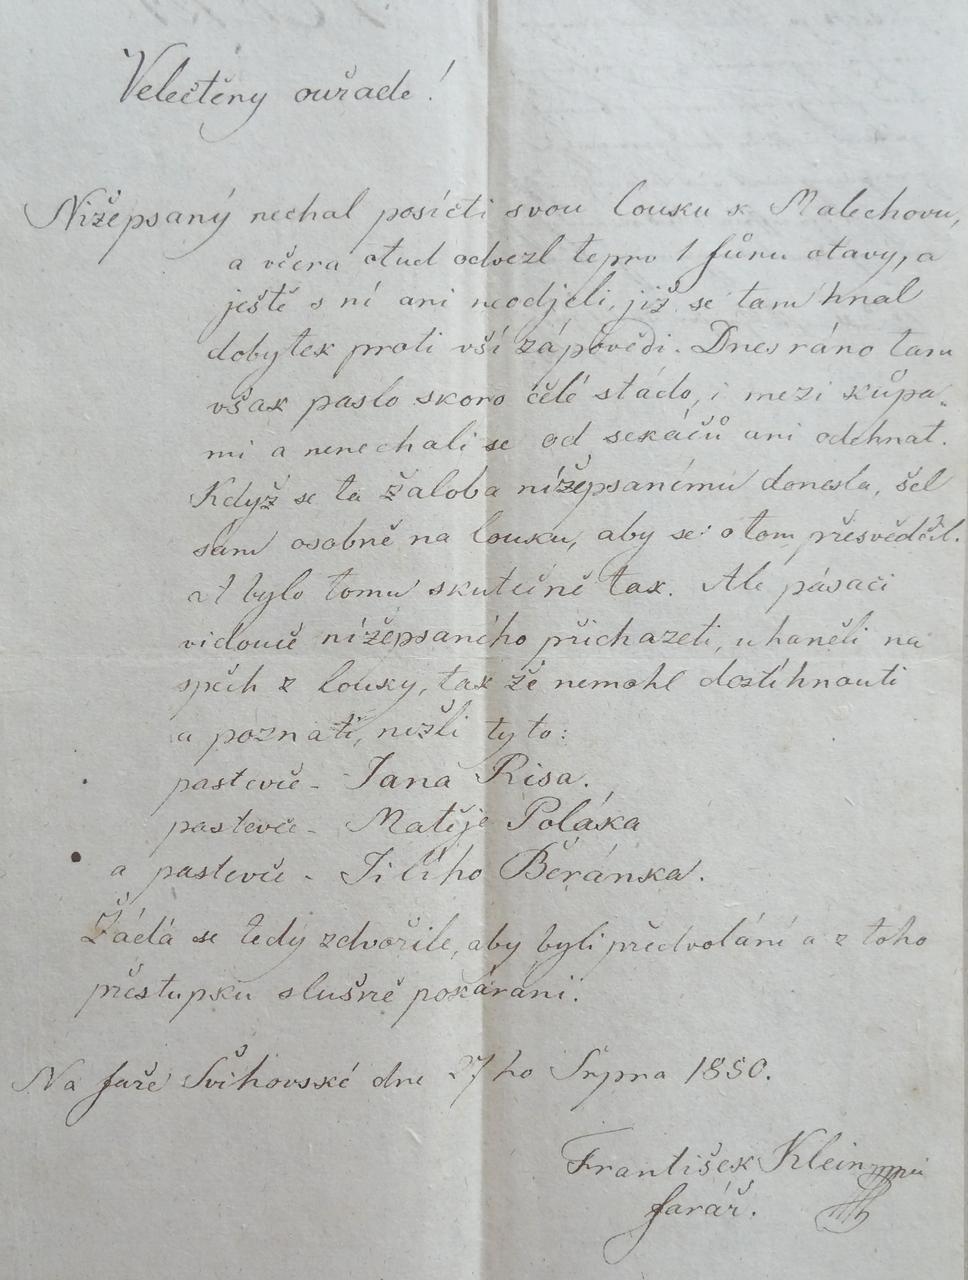 Velectěny ouřade!
Nížepsaný nechal posícti svou louku k Malechovu,
a včera otud odvezl teprv 1 fůru otavy, a
ještě s ní ani neodjeli, již se tam hnal
dobytek proti vší zápovědi. Dnes ráno tam
však paslo skoro célé stádo, i mezi kůpa-
mi a nenechali se od sekáčů ani odehnat.
Když se ta žaloba nížepsanímu donesla, šel
sám osobně na louku, aby se o tom přesvědčil.
A bylo tomu skutečně tak. Ale pásači
vidouce nížepsaného přichazeti, uhaněli na
spěch z louky, tak že nemohl dostihnouti
a poznati, nežli tyto:
pastevce - Jana Risa.
pastevce - Matěje Poláka
a pastevce - Jiřího Beránka.
Žádá se tedy zdvořile, aby byli předvoláni a z toho
přestupku slušně pokáráni.
Na faře Švihovské dne 27ho Srpna 1850.
František Klein mpria
farář.